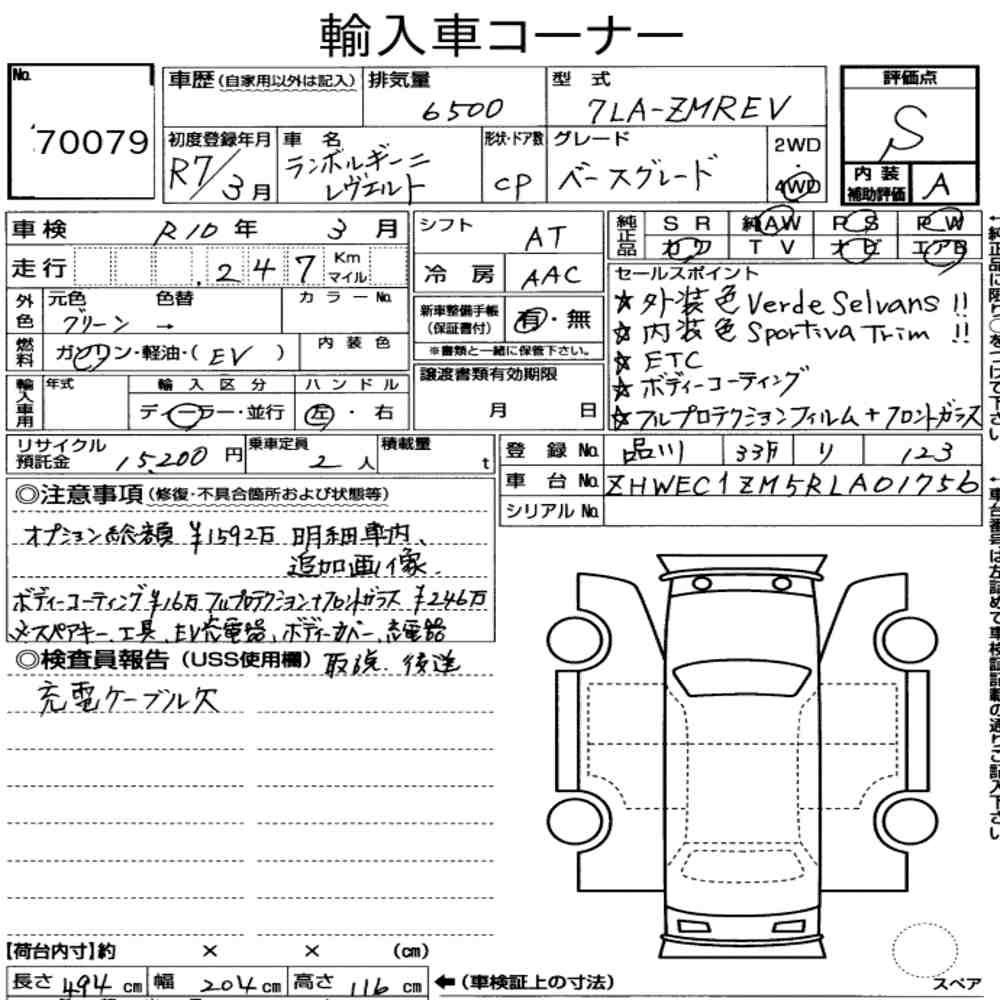 輸入車コーナー
No. 70079
車歴（自家用以外は記入）
排気量 6500
型式 7LA-ZMREV
評価点 S
初度登録年月 R7/3月
車名 ランボルギーニ レヴェルト
形状・ドア数 CP
グレード ベースグレード
2WD・4WD
内装補助評価 A
車検 R10年 3月
シフト AT
純正品 SR 純AW PS PW
カワ TV ナビ エアB
走行 247 Km マイル
冷房 AAC
外色 元色 グリーン → 色替 カラーNo.
新車整備手帳（保証書付） 有・無
※書類と一緒に保管下さい。
燃料 ガソリン・軽油・(EV) 内装色
輸入車用 年式 輸入区分 ディーラー・並行 ハンドル 左・右
譲渡書類有効期限 月 日
セールスポイント
☆外装色Verde Selvans!!
☆内装色Sportiva Trim!!
☆ETC
☆ボディーコーティング
☆フルプロテクションフィルム+フロントガラス
←純正品に限り○をつけて下さい
リサイクル預託金 15,200円
乗車定員 2人
積載量 t
登録No. 品川 331 り 123
車台No. ZHWEC1ZM5RLA01756
シリアルNo.
←車台番号は左詰めで車検証記載の通りご記入下さい
◎注意事項（修復・不具合箇所および状態等）
オプション総額 ¥1592万 明細車内、
追加画像.
ボディーコーティング¥16万 フルプロテクション+フロントガラス ¥246万
スペアキー、工具、EV充電器、ボディーカバー、充電器
◎検査員報告（USS使用欄） 取説 後送
充電ケーブル欠
【荷台内寸】約 × × (cm)
長さ 494cm 幅 204cm 高さ 116cm
←（車検証上の寸法）
スペア